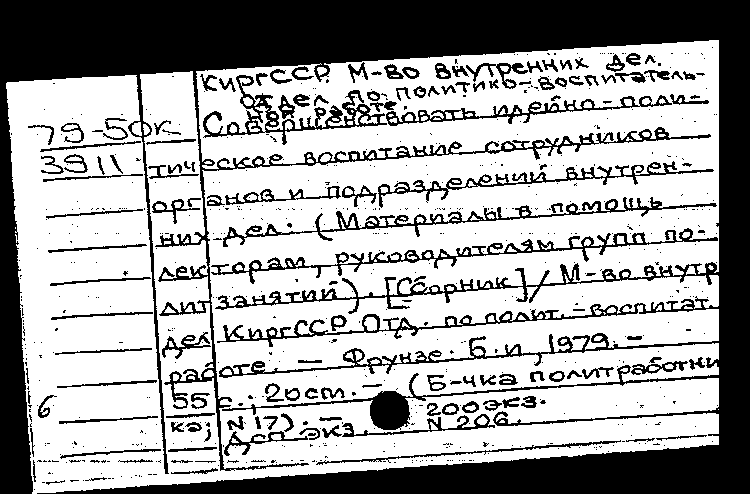 КиргССР. М-во внутренних дел.
Отдел по политико-воспитатель-
ной работе.
79-5ДК Совершенствовать идейно-поли-
3911 тическое воспитание сотрудников
органов и подразделений внутрен-
них дел: (Материалы в помощь
лекторам, руководителям групп по-
литзанятий). [Сборник] / М-во внутр
дел КиргССР. Отд. по полит.-воспитат.
работе. — Фрунзе: Б.и, 1979. —
55 с.; 20см. — (Б-чка политработни
6 ка; N 17). — 200экз.
ДСП экз. N 206.